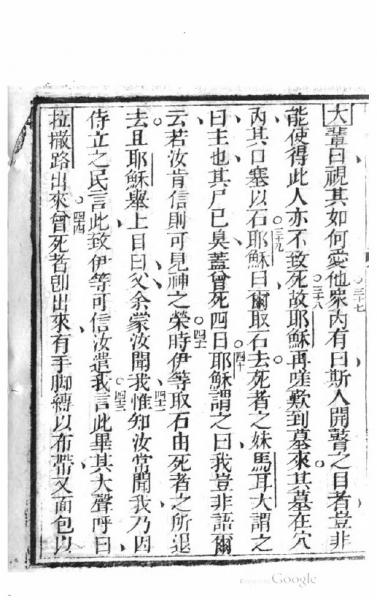 大輩曰視其如何愛他衆內有曰斯人開瞽之目者豈非
能使得此人亦不致死故耶穌再嗟歎到墓來其墓在穴
內其口塞以石耶穌曰爾取石去死者之妹馬耳大謂之
曰主也其尸已臭蓋曾死四日耶穌謂之曰我豈非語爾
云若汝肯信則可見神之榮時伊等取石由死者之所退
去且耶穌舉上目曰父余蒙汝聞我惟知汝常聞我乃因
侍立之民言此致伊等可信汝遣我言此畢其大聲呼曰
拉撒路出來曾死者卽出來有手脚縛以布帶又面包以
三十七
三十八
三十九
四十
四一
四二
四三
四四
Google